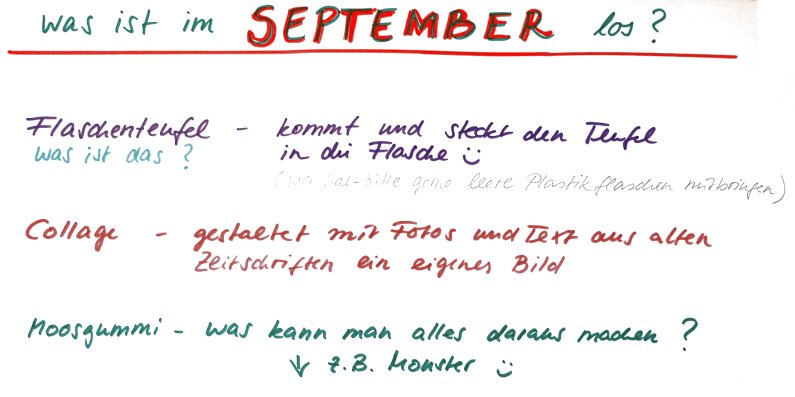 was ist im SEPTEMBER los?
Flaschenteufel - kommt und steckt den Teufel
was ist das? in die Flasche ü
(wer hat-bitte gerne leere Plastikflaschen mitbringen)
Collage - gestaltet mit Fotos und Text aus alten
Zeitschriften ein eigenes Bild
Moosgummi - was kann man alles daraus machen?
↓ z.B. Monster ü